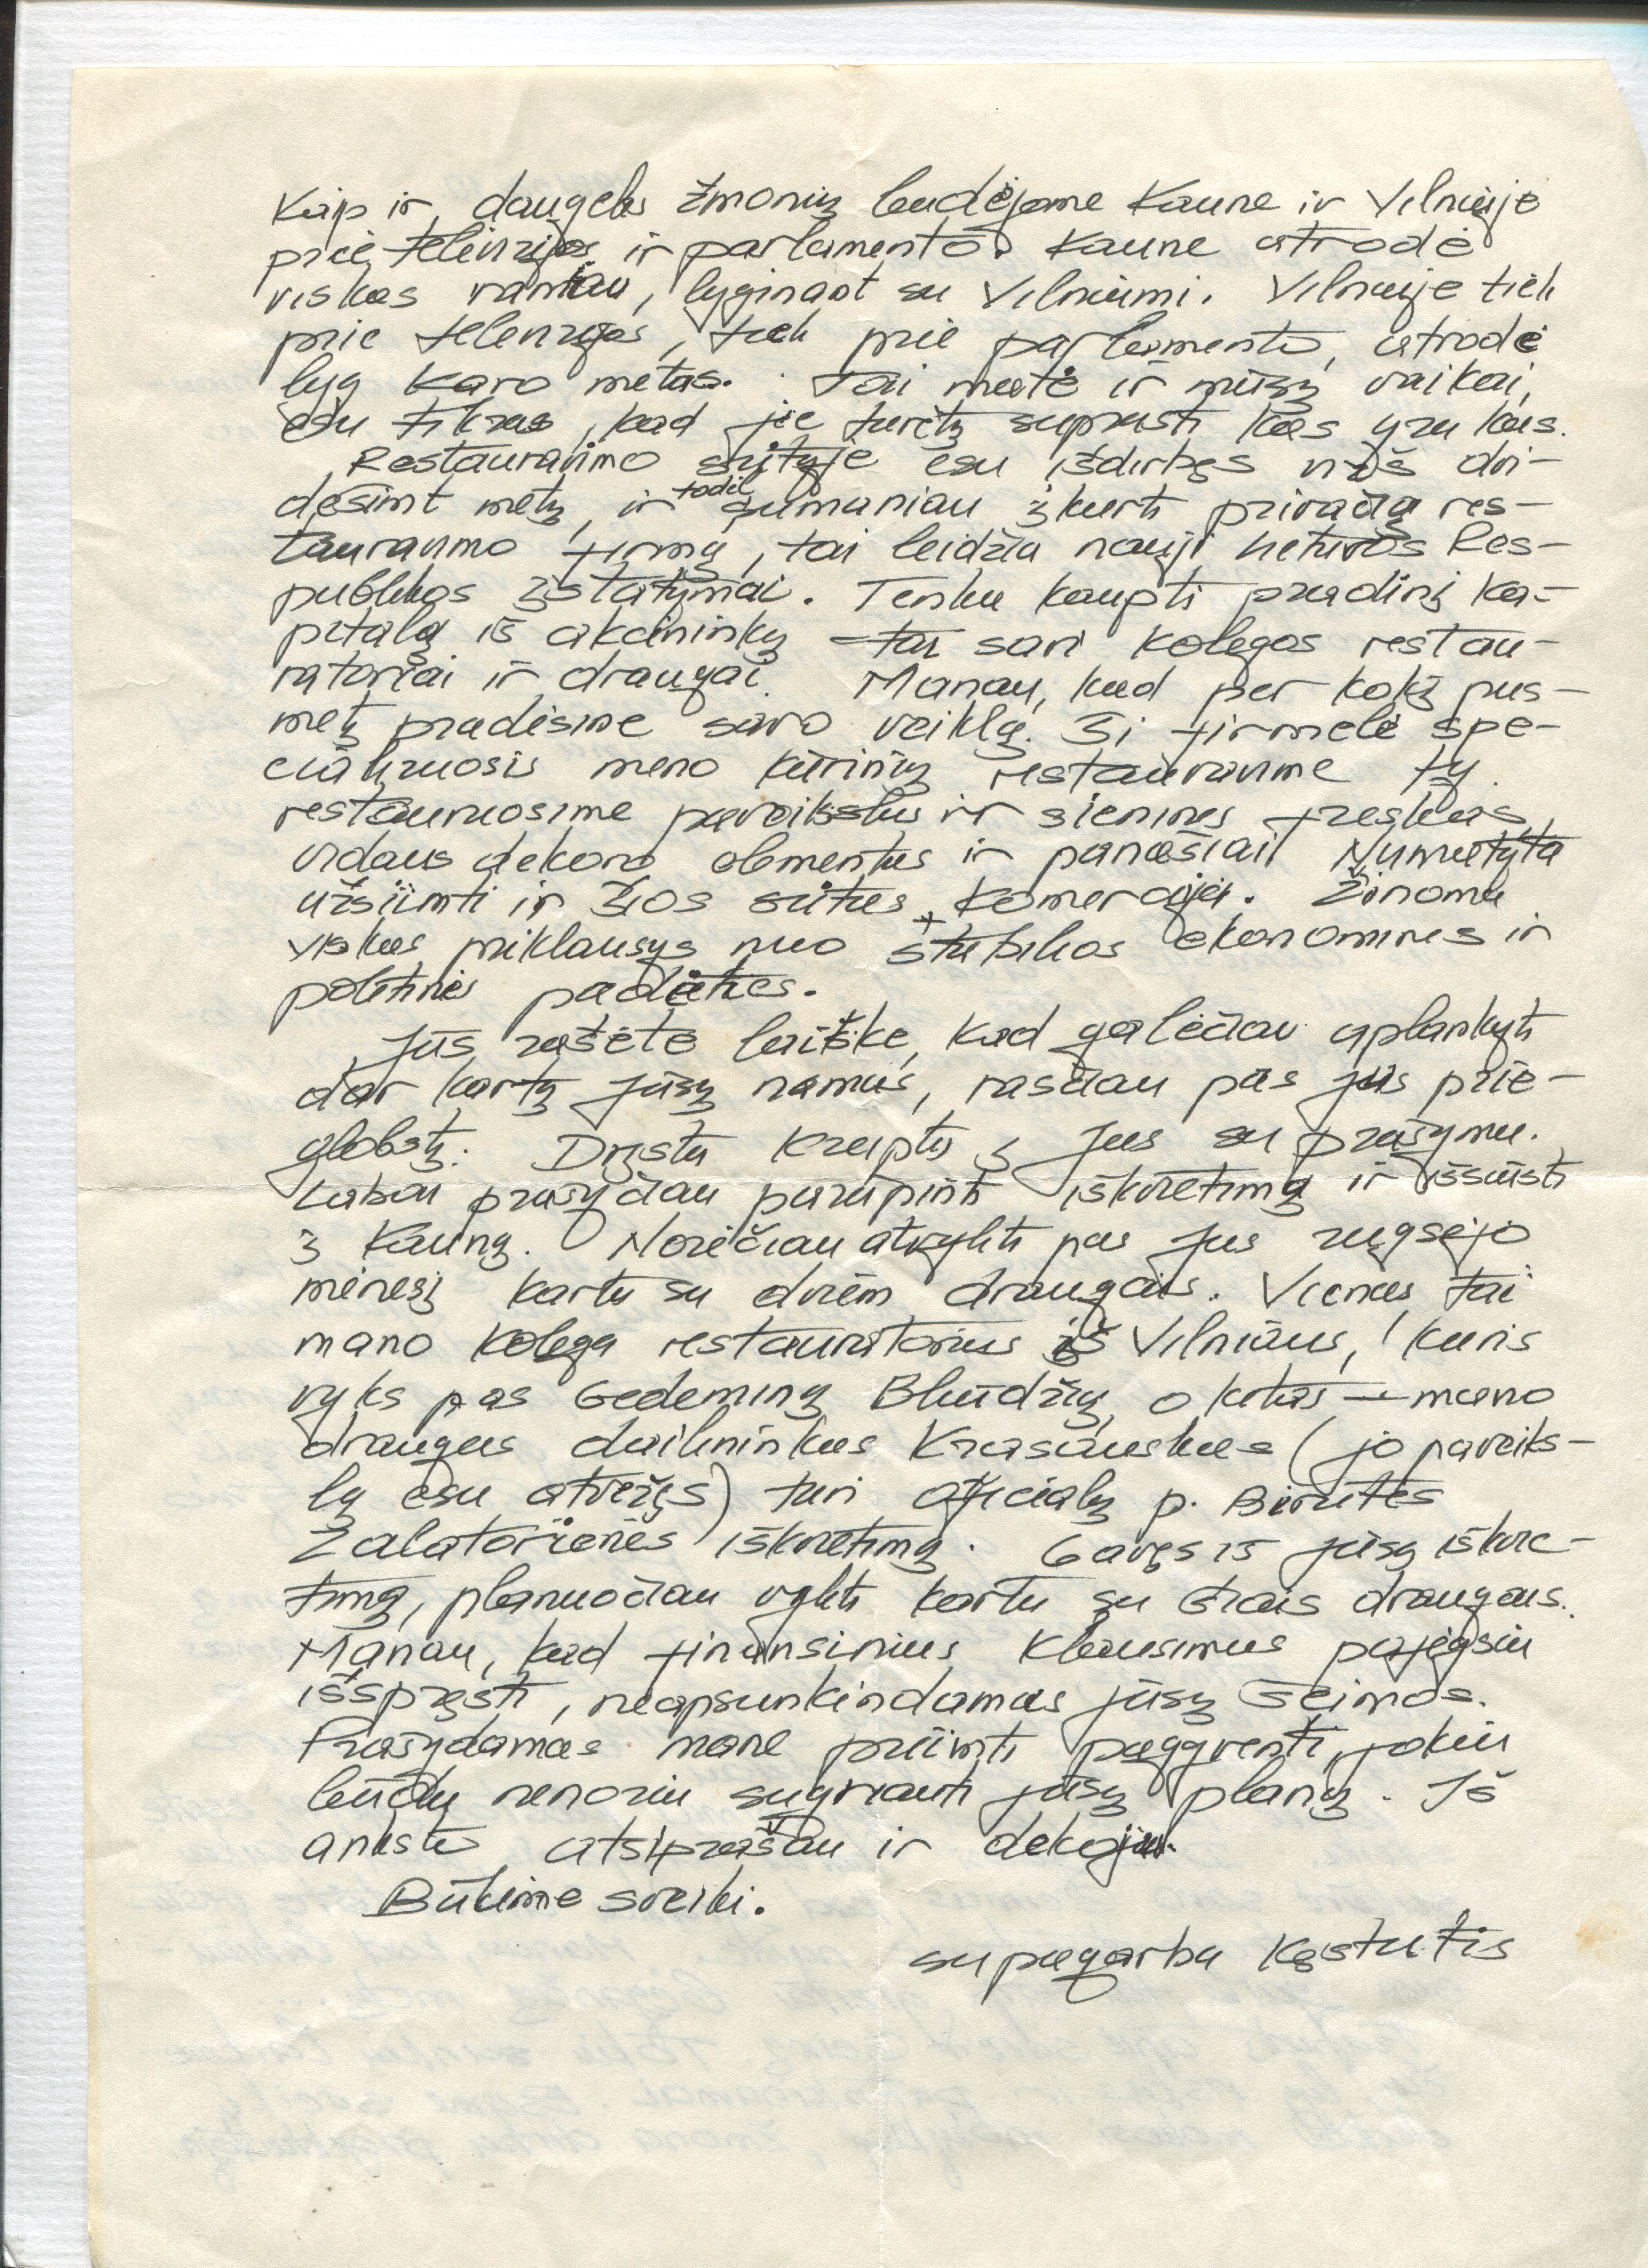 Kaip ir daugelis žmonių budėjome Kaune ir Vilniuje
prie televizijos ir parlamento. Kaune atrodė
viskas ramiau, lyginant su Vilniumi. Vilniuje tiek
prie televizijos, tiek prie parlamento, atrodė
lyg karo metas. Tai matė ir mūsų vaikai,
esu tikras, kad jie turėtų suprasti kas yra kas.
Restauravimo srityje esu išdirbęs virš dvi-
dešimt metų, ir todėl sumaniau įkurti privačią res-
tauravimo firmą, tai leidžia nauji Lietuvos Res-
publikos įstatymai. Tenka kaupti pradinį ka-
pitalą iš akcininkų – tai savi kolegos restau-
ratoriai ir draugai. Manau, kad per kokį pus-
metį pradėsime savo veiklą. Ši firmelė spe-
cializuosis meno kūrinių restauravime t.y.
restauruosime paveikslus ir sienines freskas,
vidaus dekoro elementus ir panašiai. Numatyta
užsiimti ir šios srities komercija. Žinoma
viskas priklausys nuo stabilios ekonominės ir
politinės padėties.
Jūs rašėte laiške, kad galėčiau aplankyti
dar kartą Jūsų namus, rasčiau pas jus prie-
globstį. Drįstu kreiptis į Jus su prašymu.
Labai prašyčiau parūpinti iškvietimą ir išsiųsti
į Kauną. Norėčiau atvykti pas Jus rugsėjo
mėnesį kartu su dviem draugais. Vienas tai
mano kolega restauratorius iš Vilniaus, kuris
vyks pas Gedeminą Bliūdžių, o kitas – mano
draugas dailininkas Krasauskas (jo paveiks-
lą esu atvežęs) turi oficialų p. Birutės
Zalatorienės iškvietimą. Gavęs iš Jūsų iškvie-
timą, planuočiau vykti kartu su šiais draugais.
Manau, kad finansinius klausimus pajėgsiu
išspręsti, neapsunkindamas Jūsų šeimos.
Prašydamas mane priimti pagyventi, jokiu
būdu nenoriu sugriauti Jūsų planų. Iš
anksto atsiprašau ir dėkoju.
Būkime sveiki.
su pagarba Kęstutis